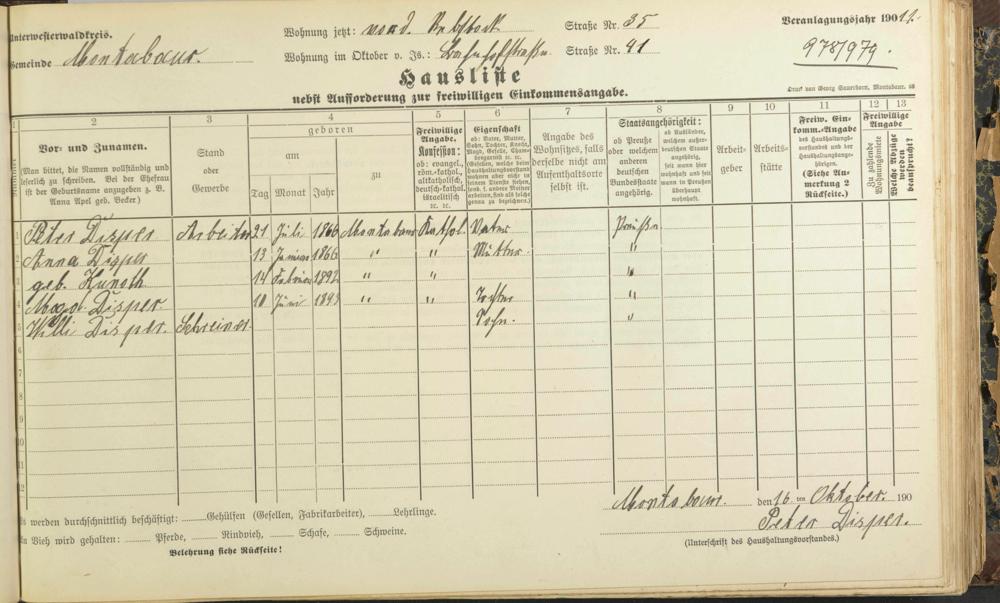 Unterwesterwaldkreis.
Gemeinde Montabaur.
Wohnung jetzt: vord. Rebstock Straße Nr. 35
Wohnung im Oktober v. Js.: Bahnhofstraße Straße Nr. 41
Veranlagungsjahr 19011.
978/979.
Hausliste
nebst Aufforderung zur freiwilligen Einkommensangabe.
Druck von Georg Sauerborn, Montabaur.
2
Vor- und Zunamen.
(Man bittet, die Namen vollständig und
leserlich zu schreiben. Bei der Ehefrau
ist der Geburtsname anzugeben z. B.
Anna Apel geb. Becker.)
3
Stand
oder
Gewerbe
4
geboren
am
Tag Monat Jahr
zu
5
Freiwillige
Angabe.
Konfession:
ob: evangel.,
röm.-kathol.,
altkatholisch,
deutsch-kathol.
israelitisch
ec. ec.
6
Eigenschaft
ob: Vater, Mutter,
Sohn, Tochter, Knecht,
Magd, Geselle,
7
Angabe des
Wohnsitzes, falls
derselbe nicht am
Aufenthaltsorte
selbst ist.
8
Staatsangehörigkeit:
ob Preuße
oder welchem
anderen
deutschen
Bundesstaate
angehörig.
ob Ausländer,
welchem außer-
deutschen Staate
angehörig,
seit wann hier
wohnhaft und seit
wann in Preußen
überhaupt
wohnhaft.
9
Arbeit-
geber
10
Arbeits-
stätte
11
Freiw. Ein-
komm.-Angabe
des Haushaltungs-
vorstandes und der
Haushaltungsange-
hörigen.
(Siehe An-
merkung 2
Rückseite.)
12 13
Freiwillige
Angabe
Zu zahlende
Wohnungsmiete
Welche Abzüge
werden
beansprucht?
1 Peter Disper Arbeiter 21 Juli 1866 Montabaur Kathol. Vater Preuße
2 Anna Disper 13 Januar 1866 " " Mutter. "
3 geb. Kunoth 14 Februar 1892 " " "
4 Disper. 10 Juni 1893 " " Tochter "
5 Willi Disper. Schreiner. Sohn. "
6
7
8
9
10
11
12
Montabaur. den 16.ten Oktober. 190
Peter Disper.
(Unterschrift des Haushaltungsvorstandes.)
Es werden durchschnittlich beschäftigt: Gehülfen (Gesellen, Fabrikarbeiter), Lehrlinge.
An Vieh wird gehalten: Pferde, Rindvieh, Schafe, Schweine.
Belehrung siehe Rückseite!